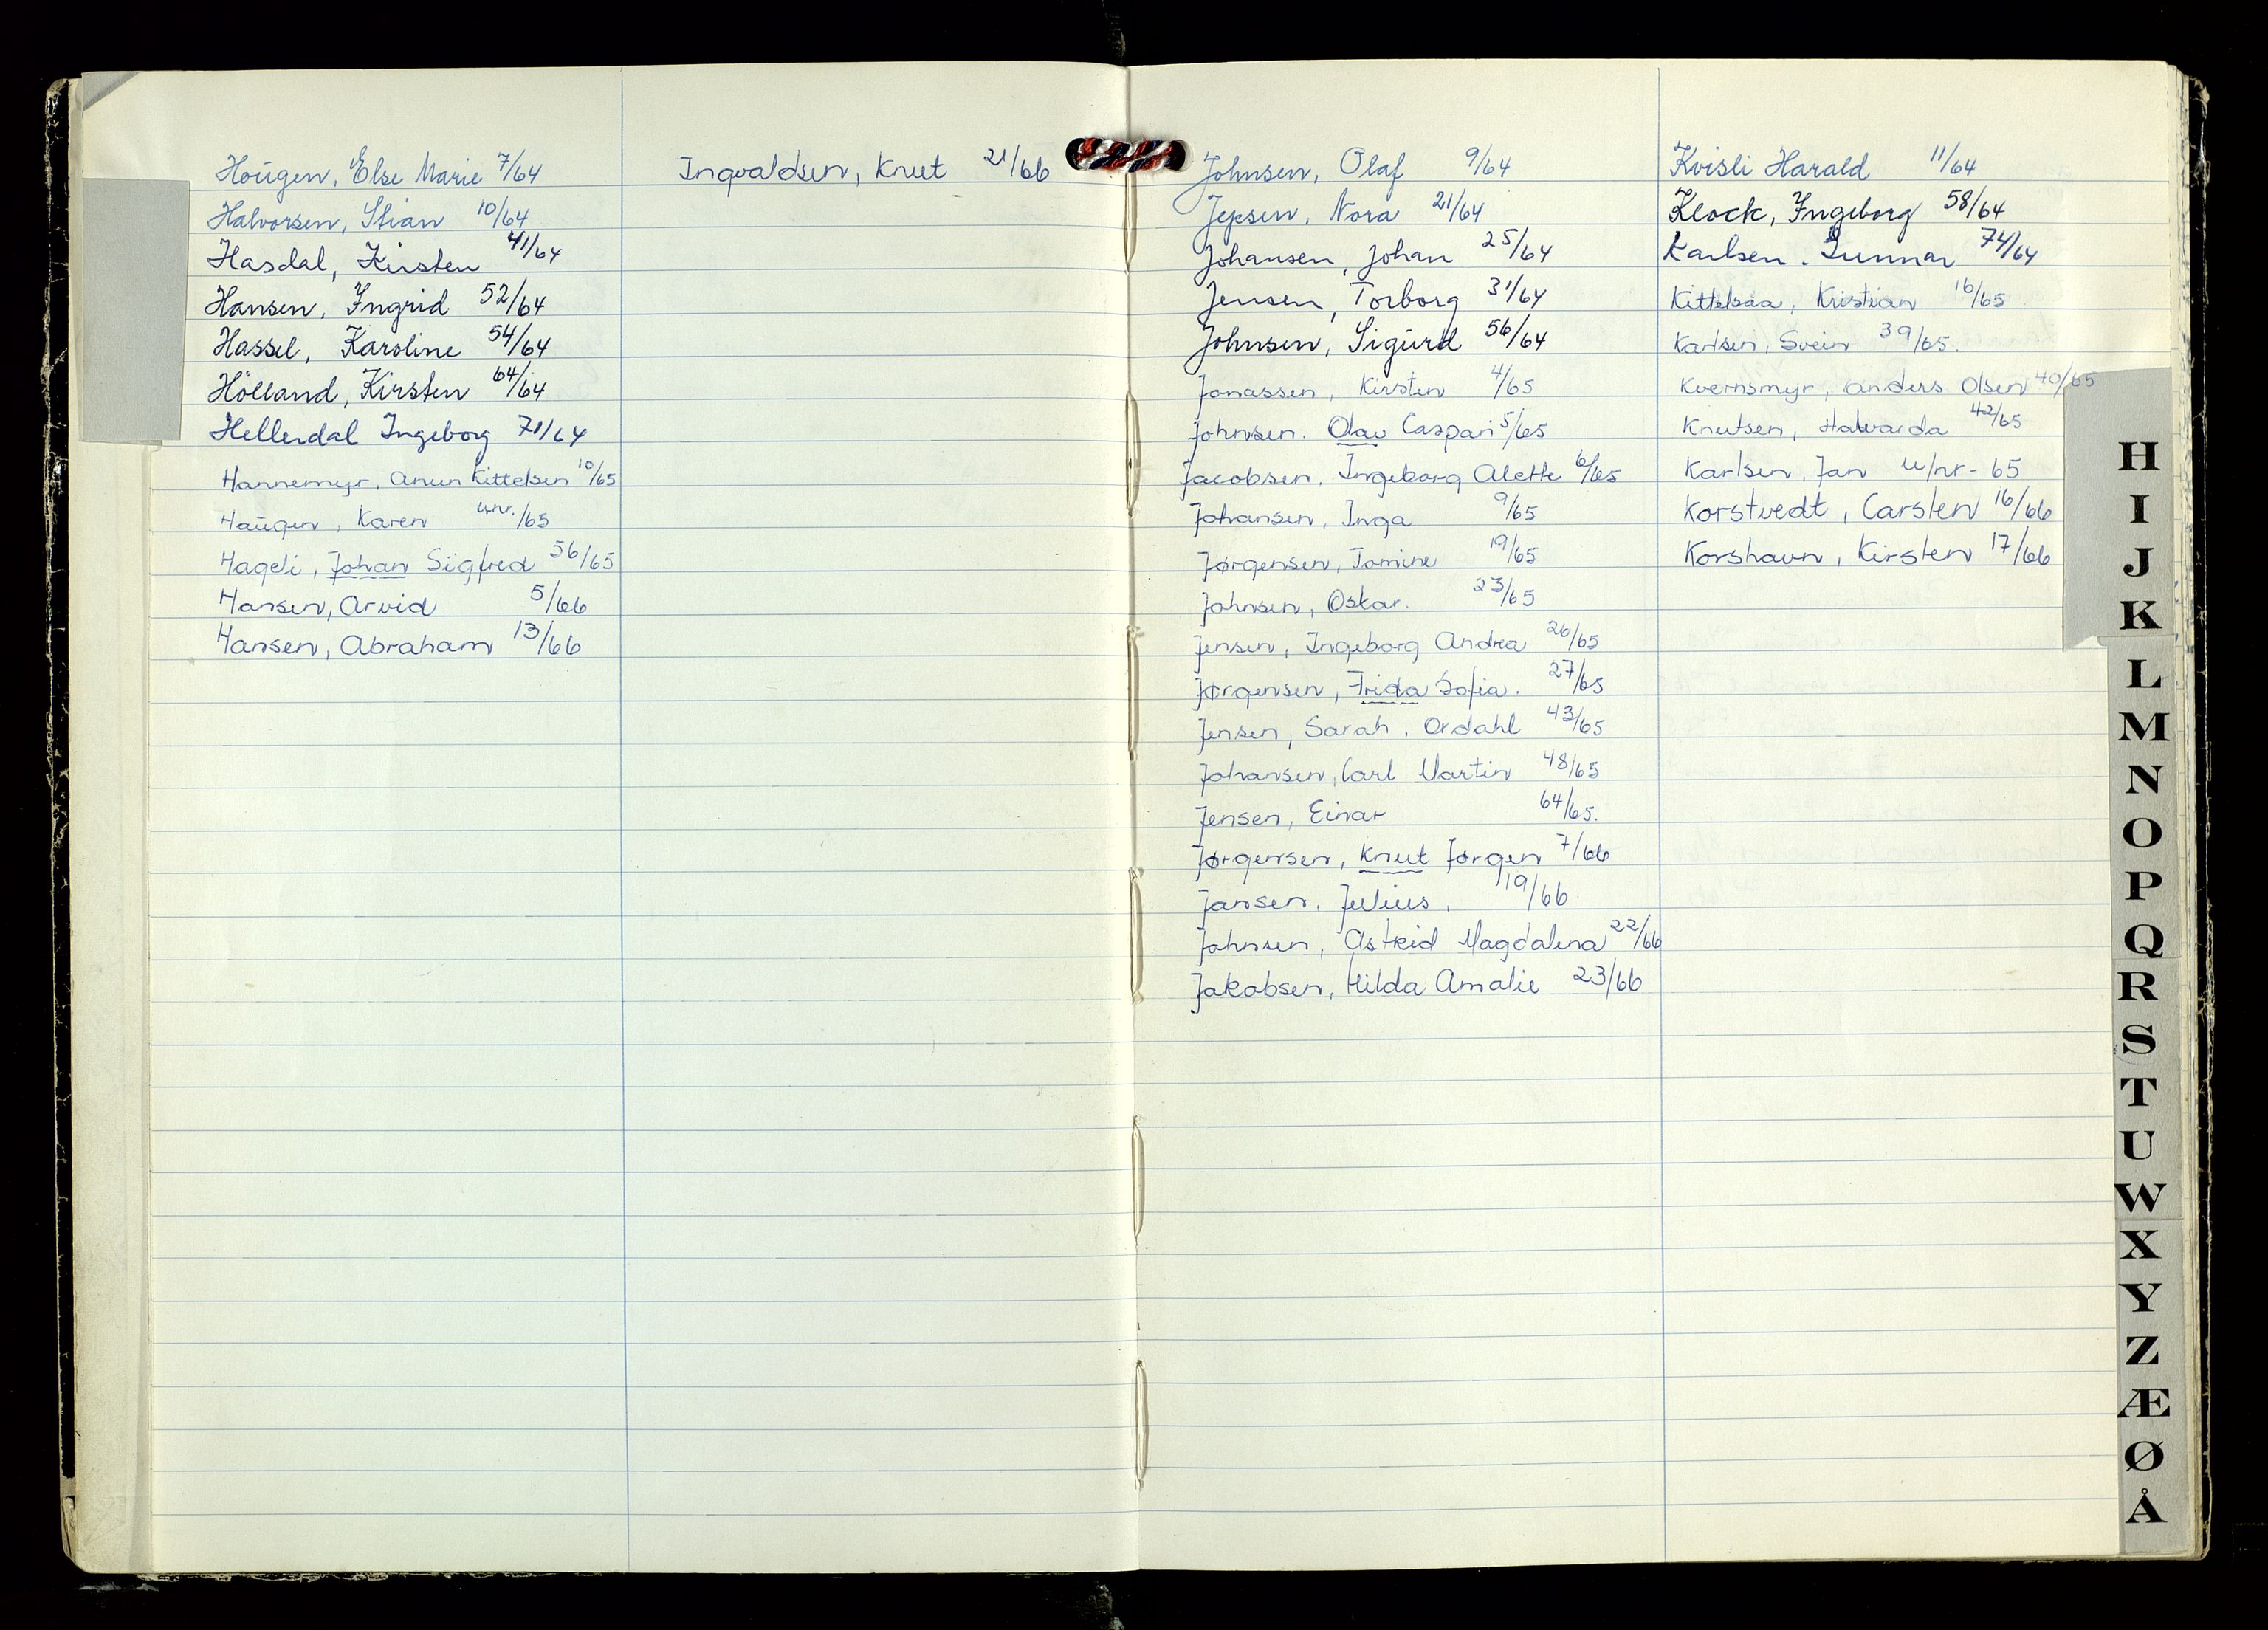 Haugen, Else Marie 7/64
Halvorsen, Stian 10/64
Hasdal, Kirsten 41/64
Hansen, Ingrid 52/64
Hassel, Karoline 54/64
Hölland, Kirsten 64/64
Hellerdal Ingeborg 71/64
Hannemyr, Anun Kittelsen 10/65
Haugen, Karen u.nr./65
Hageli, Johan Sigfred 56/65
Hansen, Arvid 5/66
Hansen, Abraham 13/66
Ingvaldsen, Knut 21/66
Johnsen, Olaf 9/64
Jepsen, Nora 21/64
Johansen, Johan 25/64
Jensen, Torborg 31/64
Johnsen, Sigurd 56/64
Jonassen, Kirsten 4/65
Johnsen. Olav Caspari 5/65
Jacobsen, Ingeborg Alette 6/65
Johansen, Inga 9/65
Jørgensen, Tomine 19/65
Johnsen, Oskar. 23/65
Jensen, Ingeborg Andrea 26/65
Jørgensen, Frida Sofia. 27/65
Jensen, Sarah, Ordahl 43/65
Johansen, Carl Martin 48/65
Jensen, Einar 64/65.
Jørgensen, Knut Jørgen 7/66
Jansen, Julius. 19/66
Johnsen, Astrid Magdalena 22/66
Jakobsen, Hilda Amalie 23/66
Kvisli Harald 11/64
Klock, Ingeborg 58/64
Karlsen. Gunnar 74/64
Kittelsaa, Kristian 16/65
Karlsen, Svein 39/65.
Kvernsmyr, Anders Olsen 40/65
Knutsen, Halvarda 42/65
Karlsen, Jan u/nr-65
Korstvedt, Carsten 16/66
Korshavn, Kirsten 17/66
H
I
J
K
L
M
N
O
P
Q
R
S
T
U
W
X
Y
Z
Æ
Ø
Å